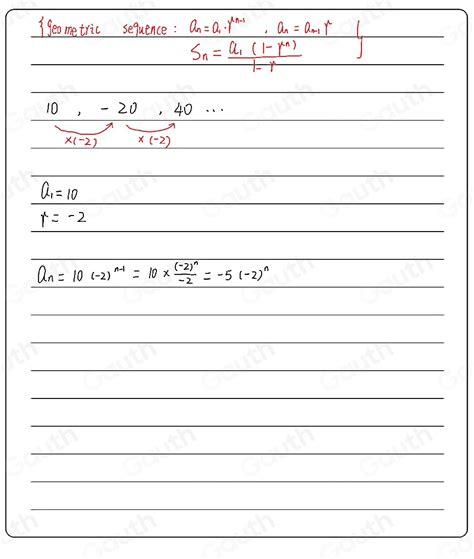 {geometric sequence: aₙ=a₁·rⁿ⁻¹, aₙ=aₙ₋₁r}
Sₙ = a₁(1-rⁿ)/1-r
10, -20, 40 ...
×(-2) ×(-2)
a₁=10
r=-2
aₙ = 10(-2)ⁿ⁻¹ = 10 × (-2)ⁿ/-2 = -5(-2)ⁿ
Gauth